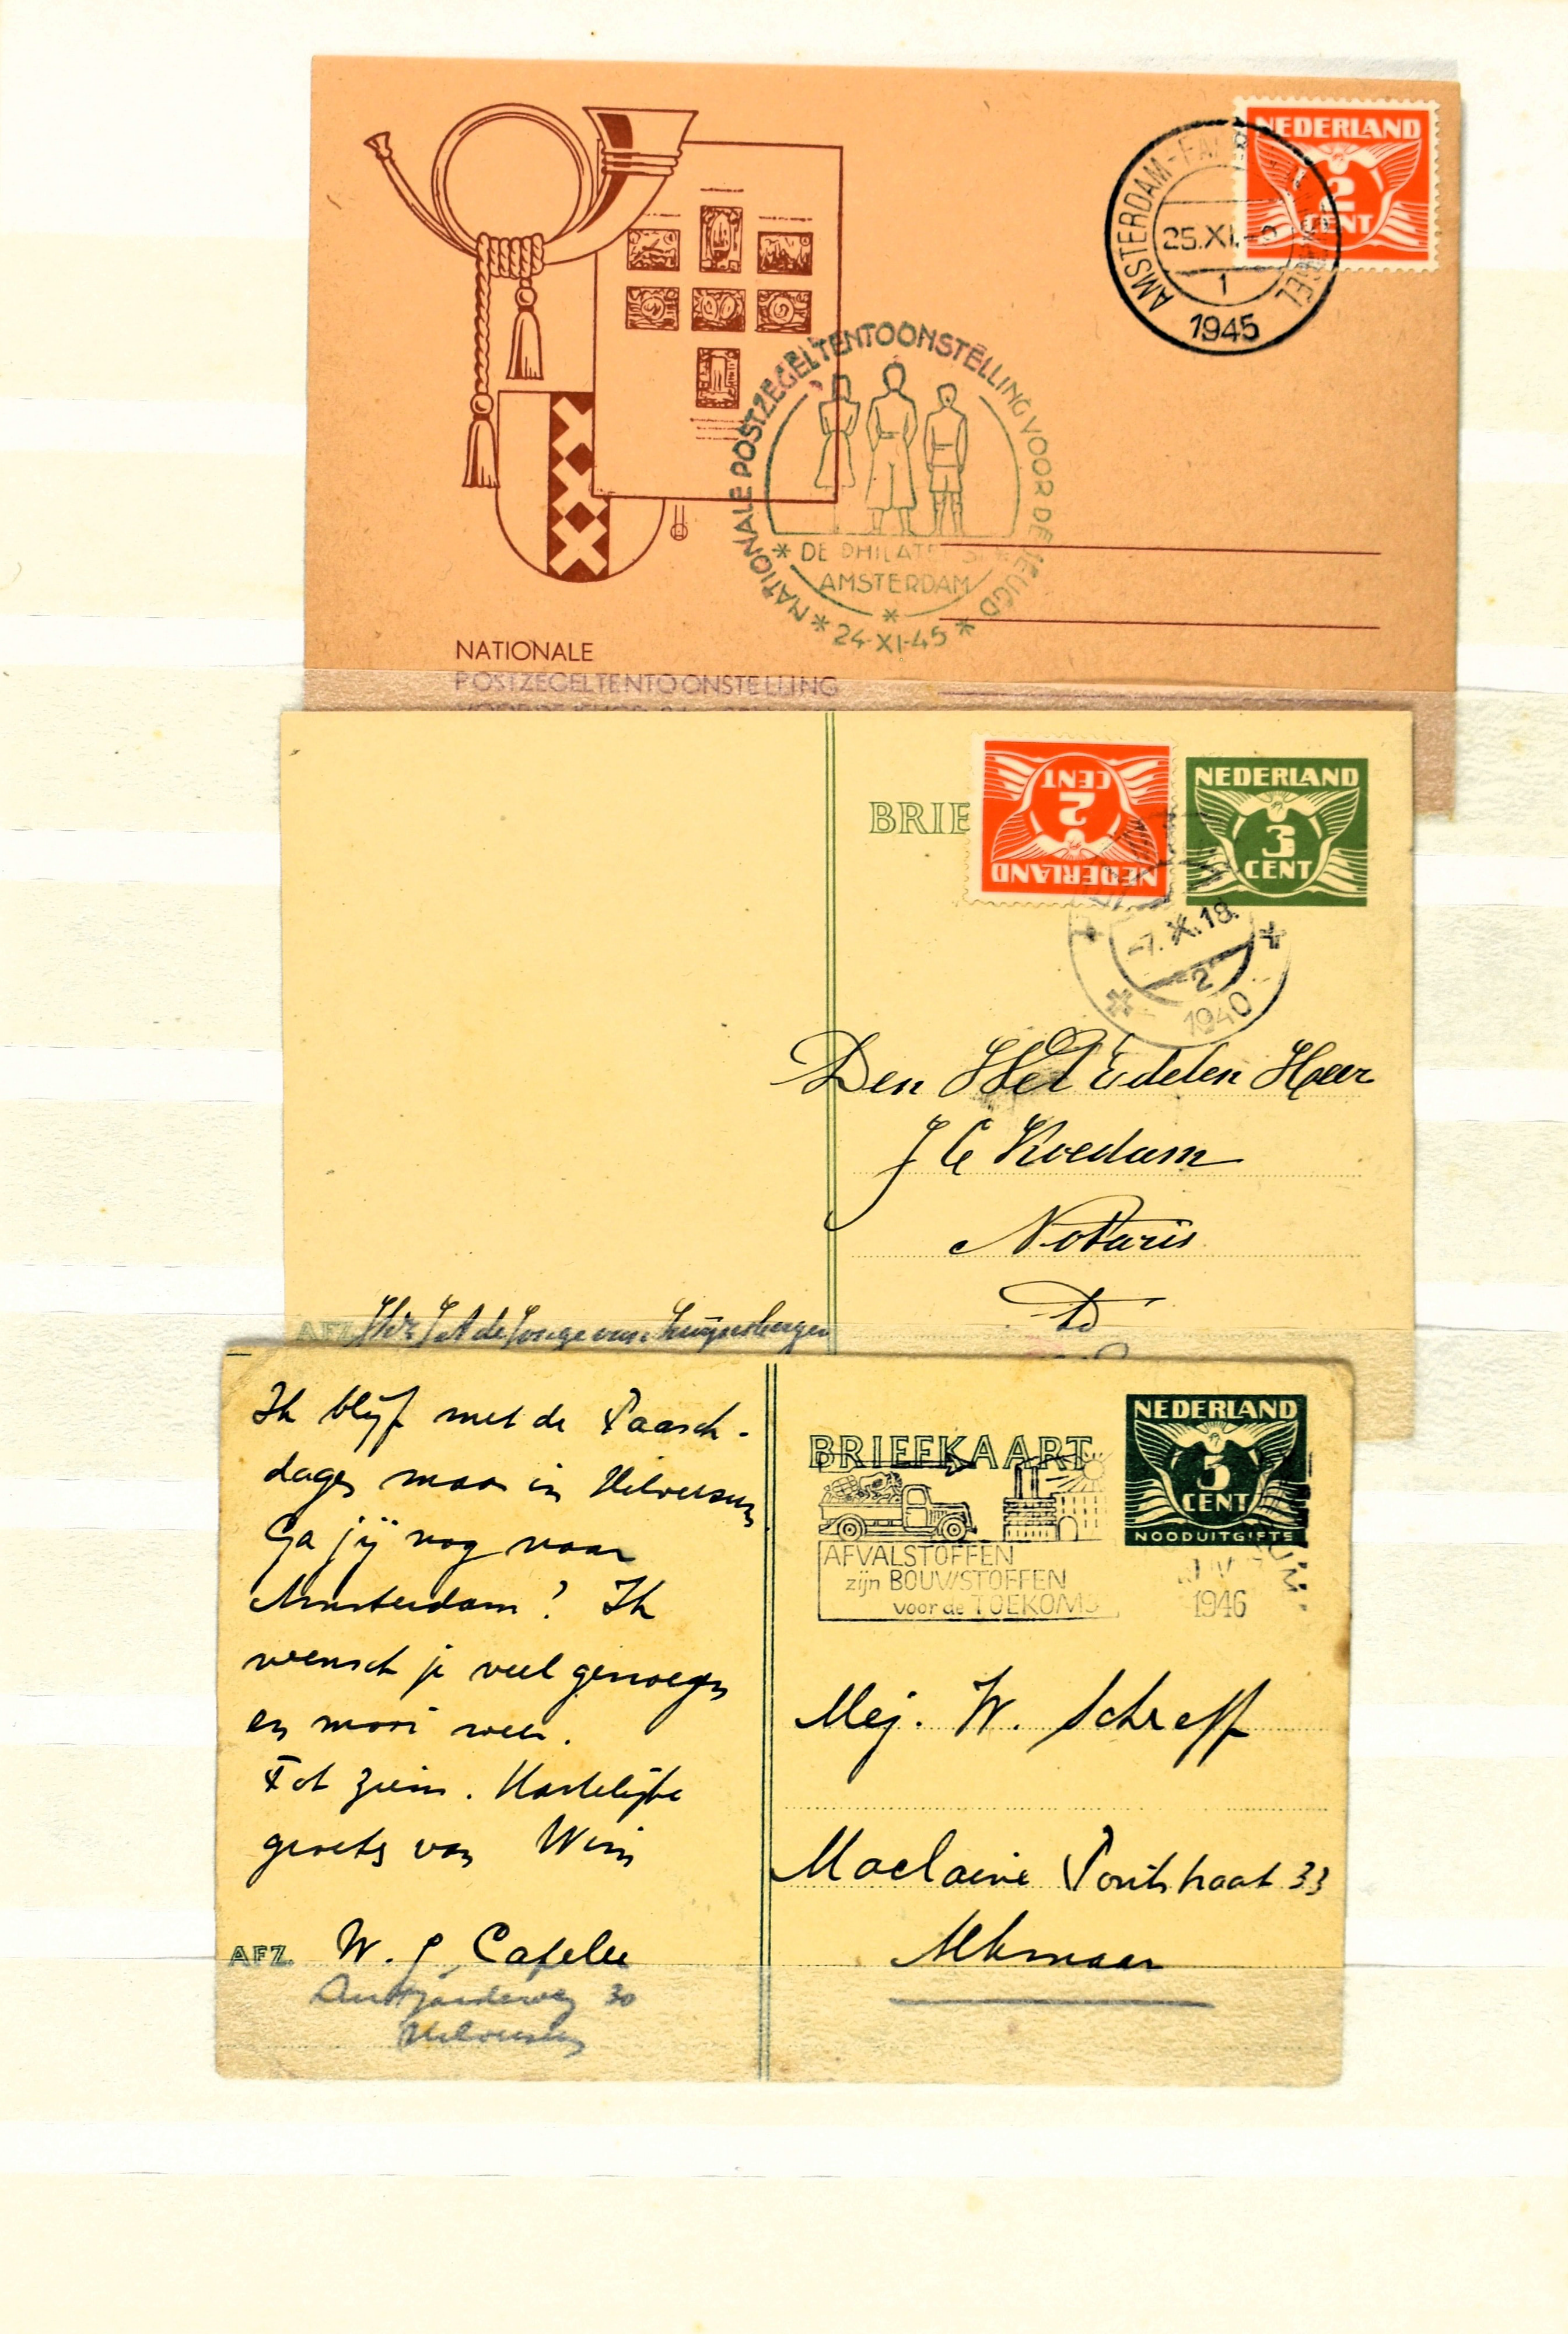 NEDERLAND
2
CENT
AMSTERDAM
25.XI.
1
1945
NATIONALE POSTZEGELTENTOONSTELLING VOOR DE JEUGD
DE PHILATELIST
AMSTERDAM
24-XI-45
NATIONALE
POSTZEGELTENTOONSTELLING
BRIE
NEDERLAND
2
CENT
NEDERLAND
3
CENT
-7.X.18.
2
1940
Den Wel Edelen Heer
J C Koedam
Notaris
AFZ.
Ik blijf met de Paasch-
dagen maar in Hilversum
Ga jij nog naar
Amsterdam? Ik
wensch je veel genoegen
en mooi weer.
Tot ziens. Hartelijke
groeten van Wim
AFZ. W. Capelle
30
Hilversum
BRIEFKAART
NEDERLAND
5
CENT
NOODUITGIFTE
AFVALSTOFFEN
zijn BOUWSTOFFEN
voor de TOEKOMST
1946
Mej. W. Schreff
Maclaine Pontstraat 33
Alkmaar